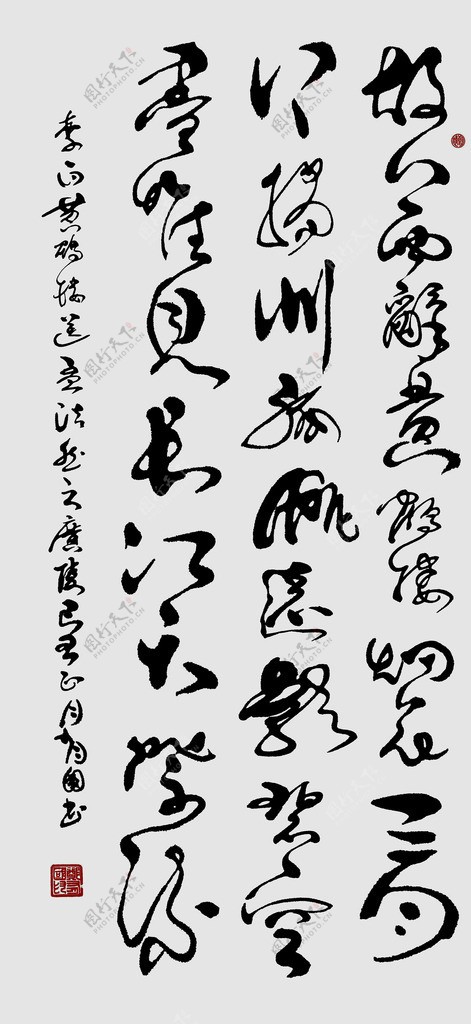 故人西辭黄鶴樓烟花三月
下揚州孤帆遠影碧空
盡唯見長江天際流
李白黄鶴樓送孟浩然之廣陵己丑正月
图行天下 PHOTOPHOTO.CN